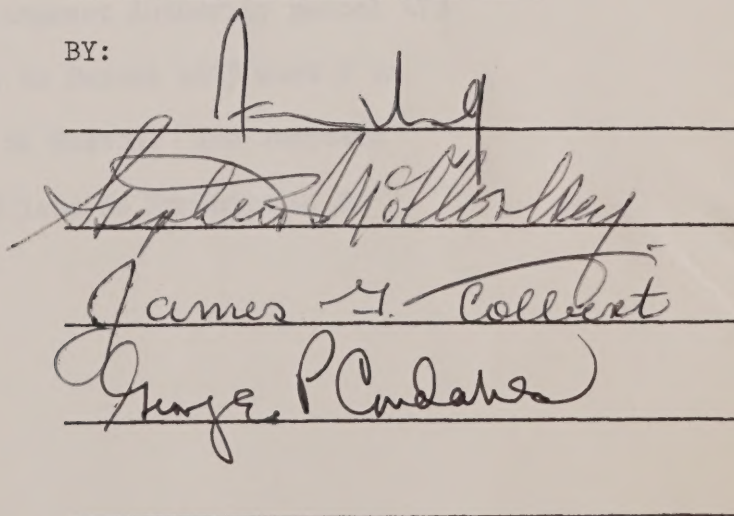 BY:
Stephen McCloskey
James G. Colbert
George P Condakes